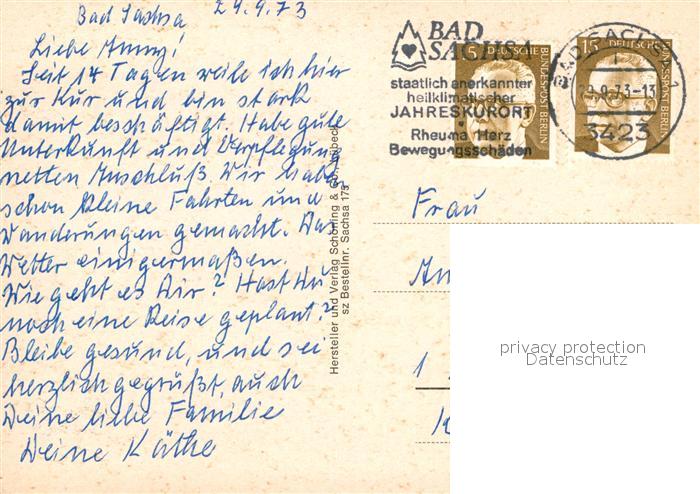 Bad Sachsa 29.9.73
Liebe Anny!
Seit 14 Tagen weile ich hier
zur Kur und bin stark
damit beschäftigt. Habe gute
Unterkunft und Verpflegung
netten Anschluß. Wir habe
schon kleine Fahrten und
Wanderungen gemacht. Das
Wetter einigermaßen.
Wie geht es Dir? Hast Du
noch eine Reise geplant?
Bleibe gesund, und sei
herzlich gegrüßt, auch
Deine liebe Familie
Deine Käthe
Hersteller und Verlag Schöning & Co., Lübeck
sz Bestellnr. Sachsa 173
BAD
SACHSA
staatlich anerkannter
heilklimatischer
JAHRESKURORT
Rheuma Herz
Bewegungsschäden
5 DEUTSCHE
BUNDESPOST BERLIN
15 DEUTSCHE
BUNDESPOST BERLIN
BAD SACHSA 1
29.9.73-13
3423
Frau
An
1
privacy protection
Datenschutz